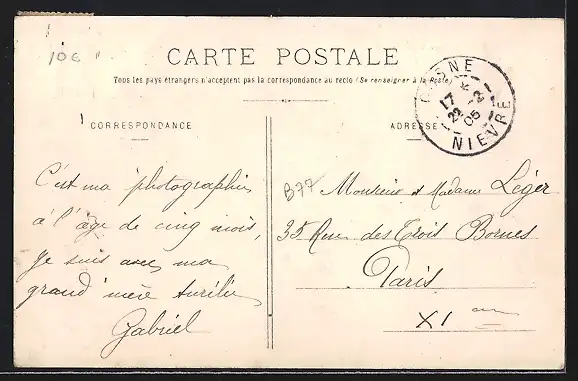 10€
CARTE POSTALE
Tous les pays étrangers n'acceptent pas la correspondance au recto (Se renseigner à la Poste)
CORRESPONDANCE
ADRESSE
NIÈVRE
17
22 - 3
05
C'est ma photographie
à l'âge de cinq mois,
je suis avec ma
grand'mère Aurélie
Gabriel
B77
Monsieur et Madame Léger
35 Rue des Trois Bornes
Paris
XI